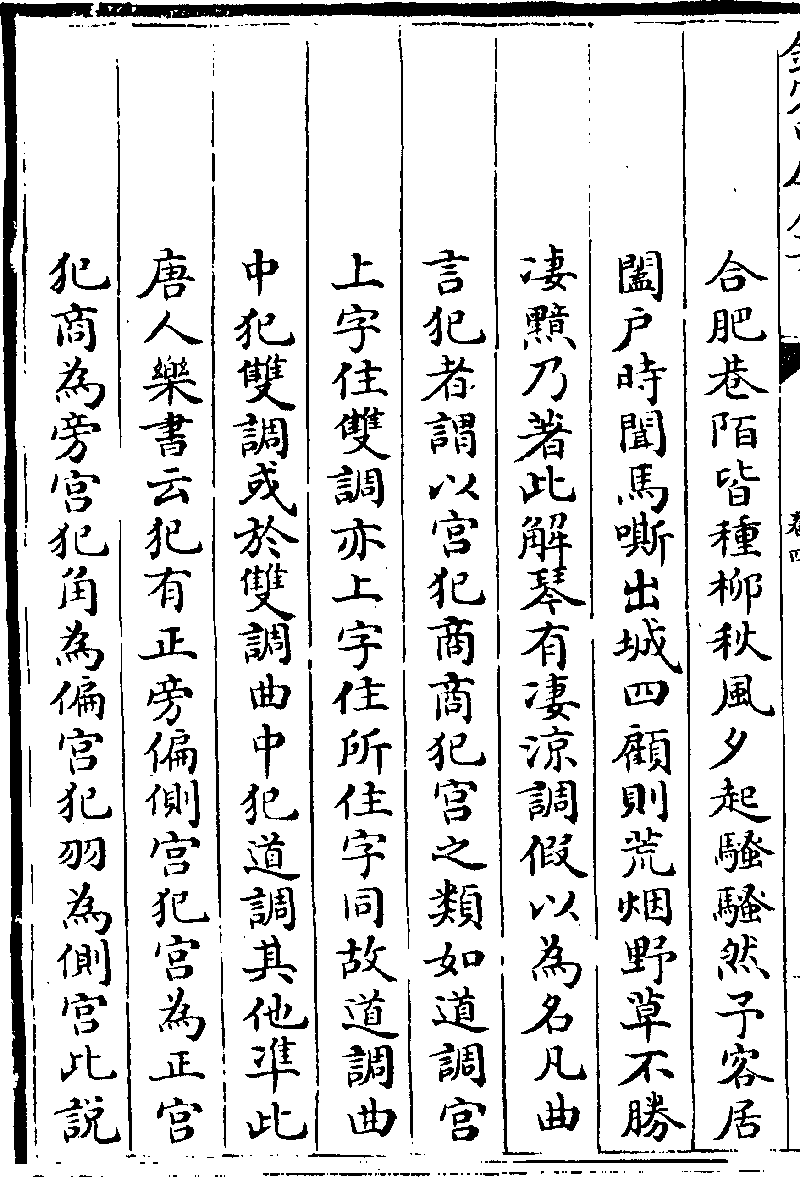 合肥巷陌皆種柳秋風夕起騷騷然予客居
闔戸時聞馬嘶出城四顧則荒烟野草不勝
凄黯乃著此解琴有凄涼調假以為名凡曲
言犯者謂以宫犯商商犯宫之類如道調宫
上字住雙調亦上字住所住字同故道調曲
中犯雙調或於雙調曲中犯道調其他準此
唐人樂書云犯有正旁偏側宫犯宫為正宫
犯商為旁宫犯角為偏宫犯羽為側宫此説
卷四